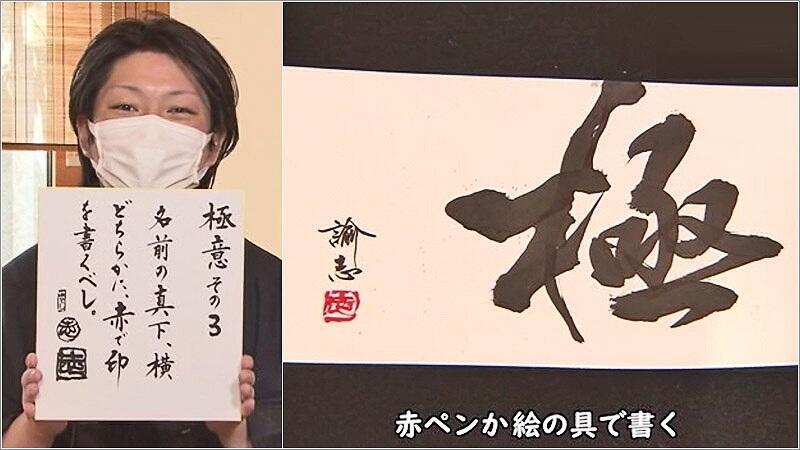 極意その3
名前の真下、横
どちらかに、赤で印
を書くべし。
極
諭志
赤ペンか絵の具で書く